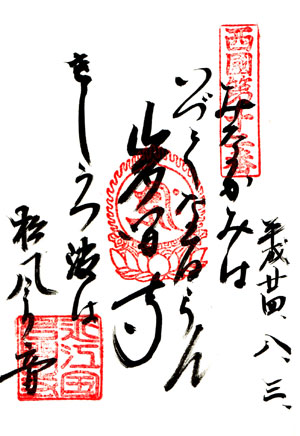 平成廿四、八、三、
西國第十二番
みなかみは
いづくなるらん
岩間寺
きしうつ浪は
松風の音